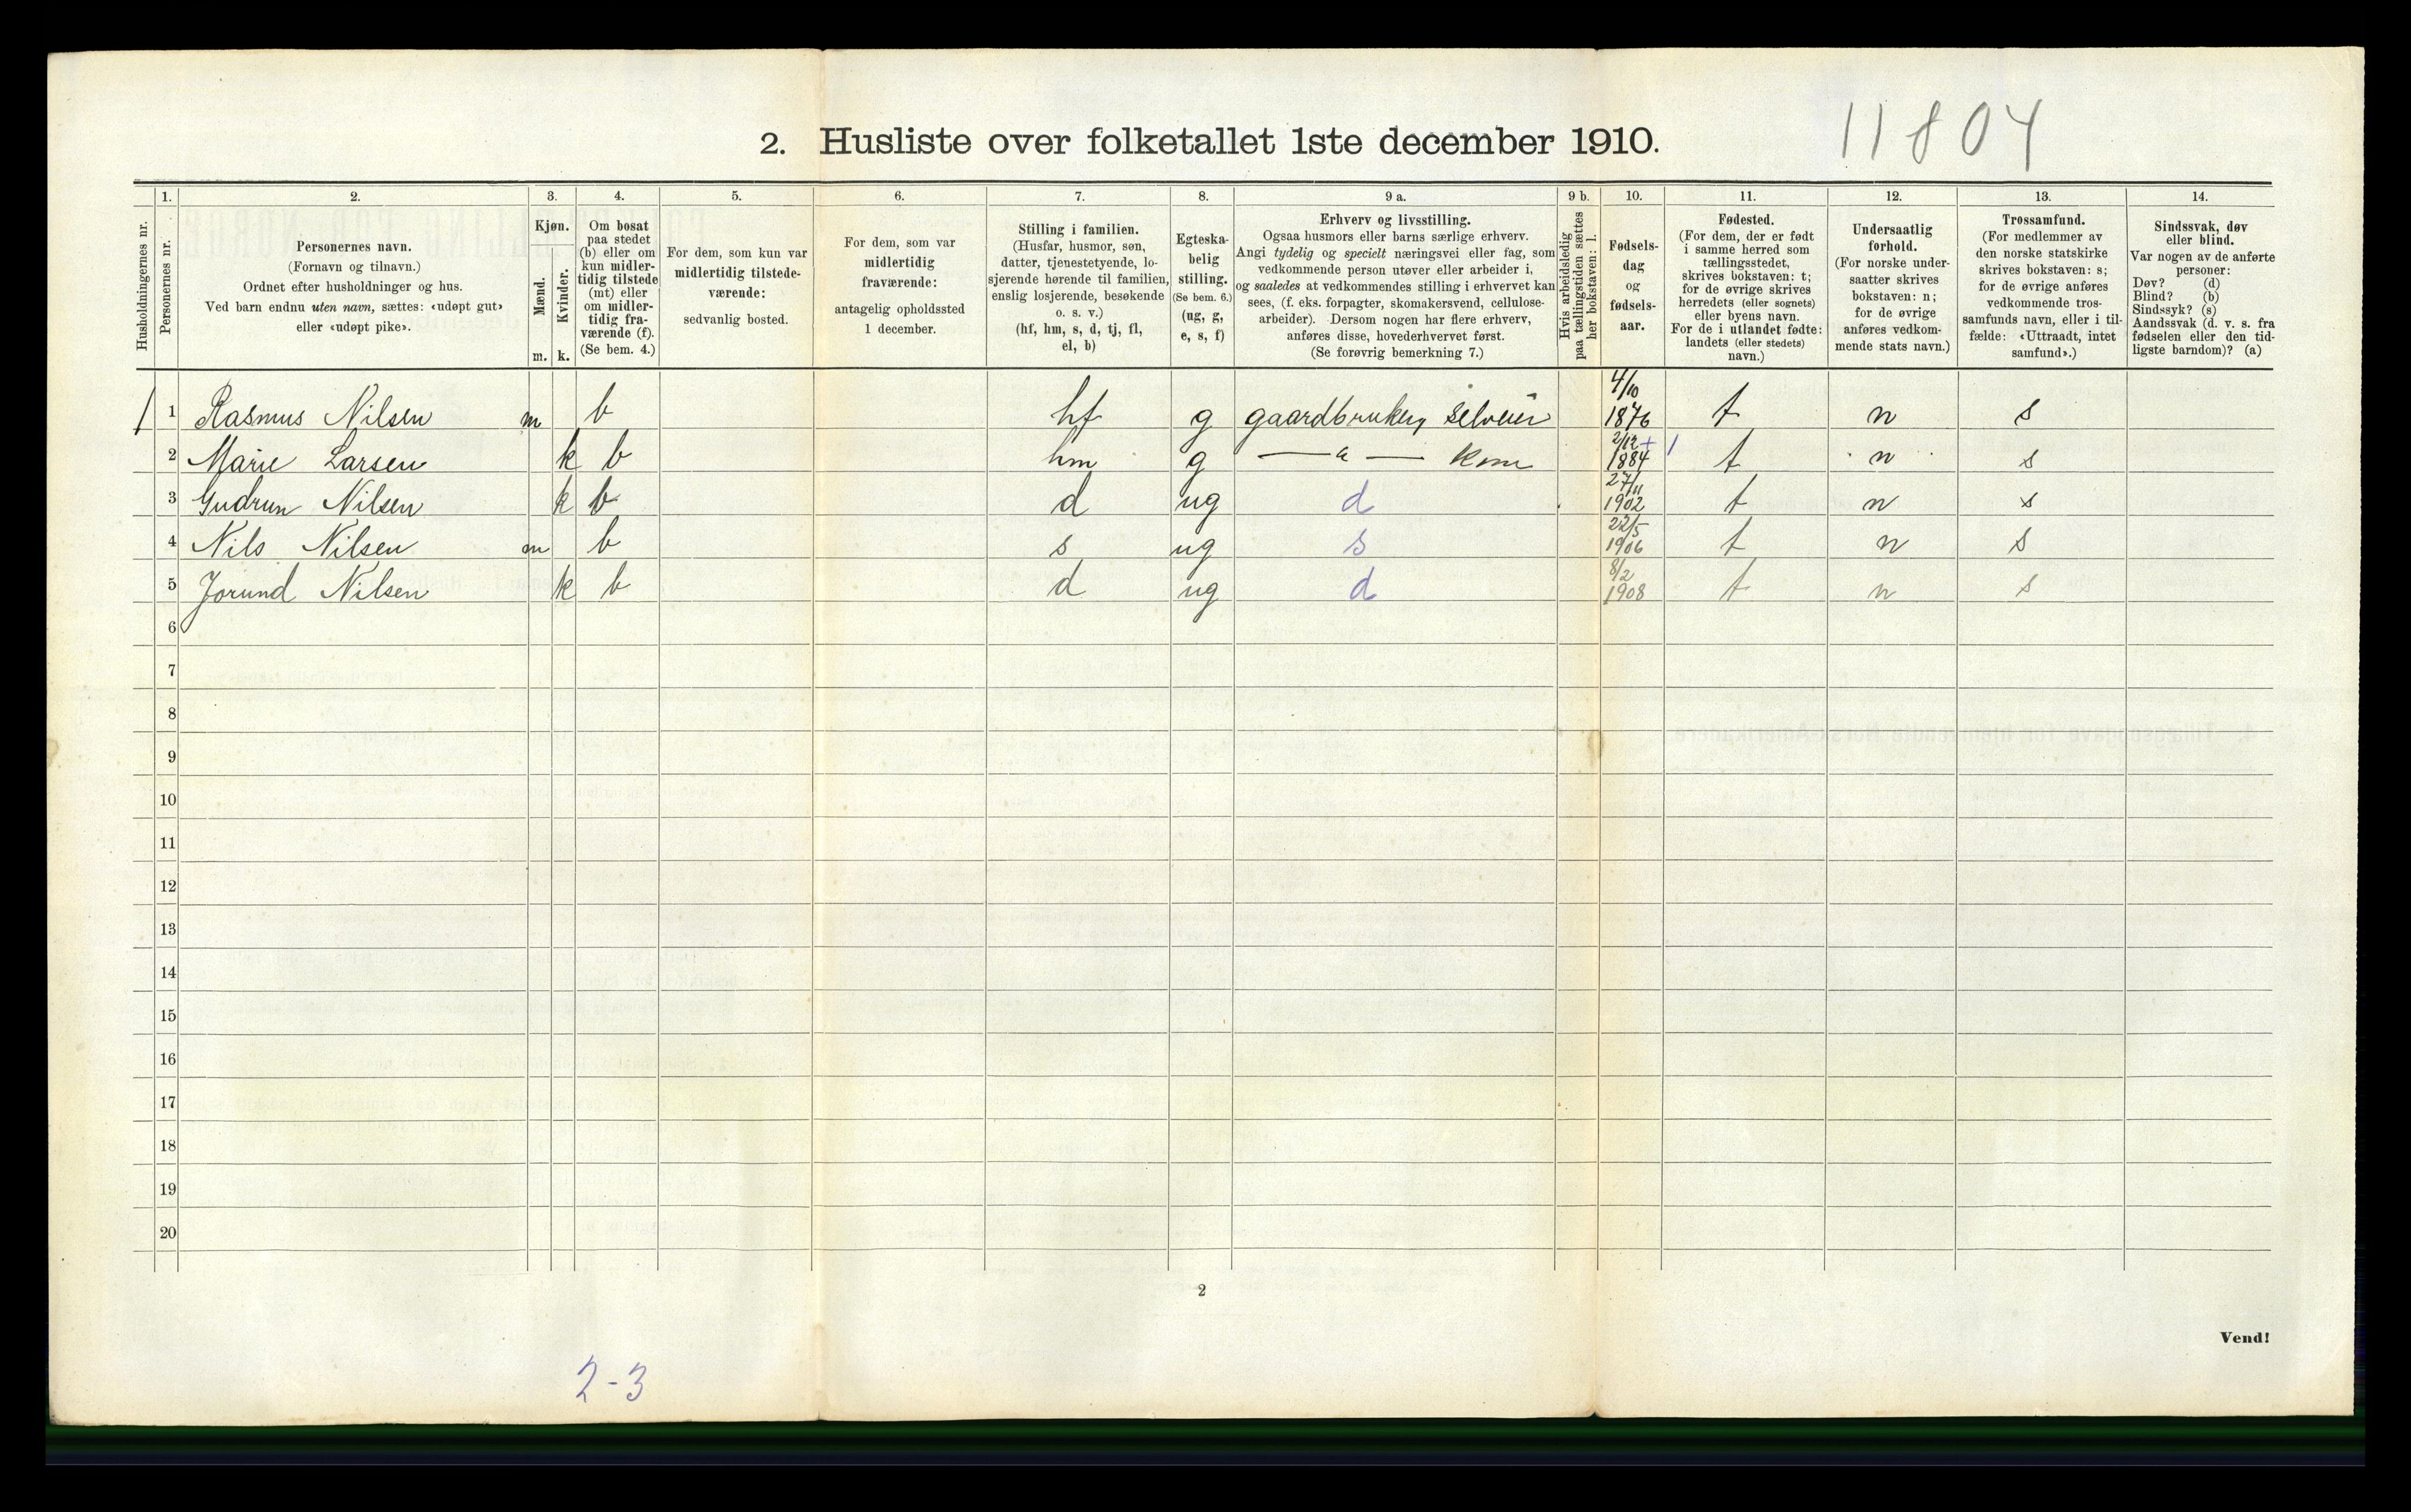 11804
2. Husliste over folketallet 1ste december 1910.
1. 2. 3. 4. 5. 6. 7. 8. 9 a. 9 b. 10. 11. 12. 13. 14.
Husholdningernes nr.
Personernes nr.
Personernes navn.
(Fornavn og tilnavn.)
Ordnet efter husholdninger og hus.
Ved barn endnu uten navn, sættes: «udøpt gut»
eller «udøpt pike».
Kjøn.
Mænd.
Kvinder.
m. k.
Om bosat
paa stedet
(b) eller om
kun midler-
tidig tilstede
(mt) eller
om midler-
tidig fra-
værende (f).
(Se bem. 4.)
For dem, som kun var
midlertidig tilstede-
værende:
sedvanlig bosted.
For dem, som var
midlertidig
fraværende:
antagelig opholdssted
1 december.
Stilling i familien.
(Husfar, husmor, søn,
datter, tjenestetyende, lo-
sjerende hørende til familien,
enslig losjerende, besøkende
o. s. v.)
(hf, hm, s, d, tj, fl,
el, b)
Egteska-
belig
stilling.
(Se bem. 6.)
(ug, g,
e, s, f)
Erhverv og livsstilling.
Ogsaa husmors eller barns særlige erhverv.
Angi tydelig og specielt næringsvei eller fag, som
vedkommende person utøver eller arbeider i,
og saaledes at vedkommendes stilling i erhvervet kan
sees, (f. eks. forpagter, skomakersvend, cellulose-
arbeider). Dersom nogen har flere erhverv,
anføres disse, hovederhvervet først.
(Se forøvrig bemerkning 7.)
Hvis arbeidsledig
paa tællingstiden sættes
her bokstaven: l.
Fødsels-
dag
og
fødsels-
aar.
Fødested.
(For dem, der er født
i samme herred som
tællingsstedet,
skrives bokstaven: t;
for de øvrige skrives
herredets (eller sognets)
eller byens navn.
For de i utlandet fødte:
landets (eller stedets)
navn.)
Undersaatlig
forhold.
(For norske under-
saatter skrives
bokstaven: n;
for de øvrige
anføres vedkom-
mende stats navn.)
Trossamfund.
(For medlemmer av
den norske statskirke
skrives bokstaven: s;
for de øvrige anføres
vedkommende tros-
samfunds navn, eller i til-
fælde: «Uttraadt, intet
samfund».)
Sindssvak, døv
eller blind.
Var nogen av de anførte
personer:
Døv? (d)
Blind? (b)
Sindssyk? (s)
Aandssvak (d. v. s. fra
fødselen eller den tid-
ligste barndom)? (a)
1 1 Rasmus Nilsen m b hf g gaardbruker, selveier 4/10 1876 t n s
2 Marie Larsen k b hm g — " — kone 2/12 + 1884 1 t n s
3 Gudrun Nilsen k b d ug d 27/11 1902 t n s
4 Nils Nilsen m b s ug s 22/5 1906 t n s
5 Jorund Nilsen k b d ug d 8/2 1908 t n s
6
7
8
9
10
11
12
13
14
15
16
17
18
19
20
2
Vend!
2-3